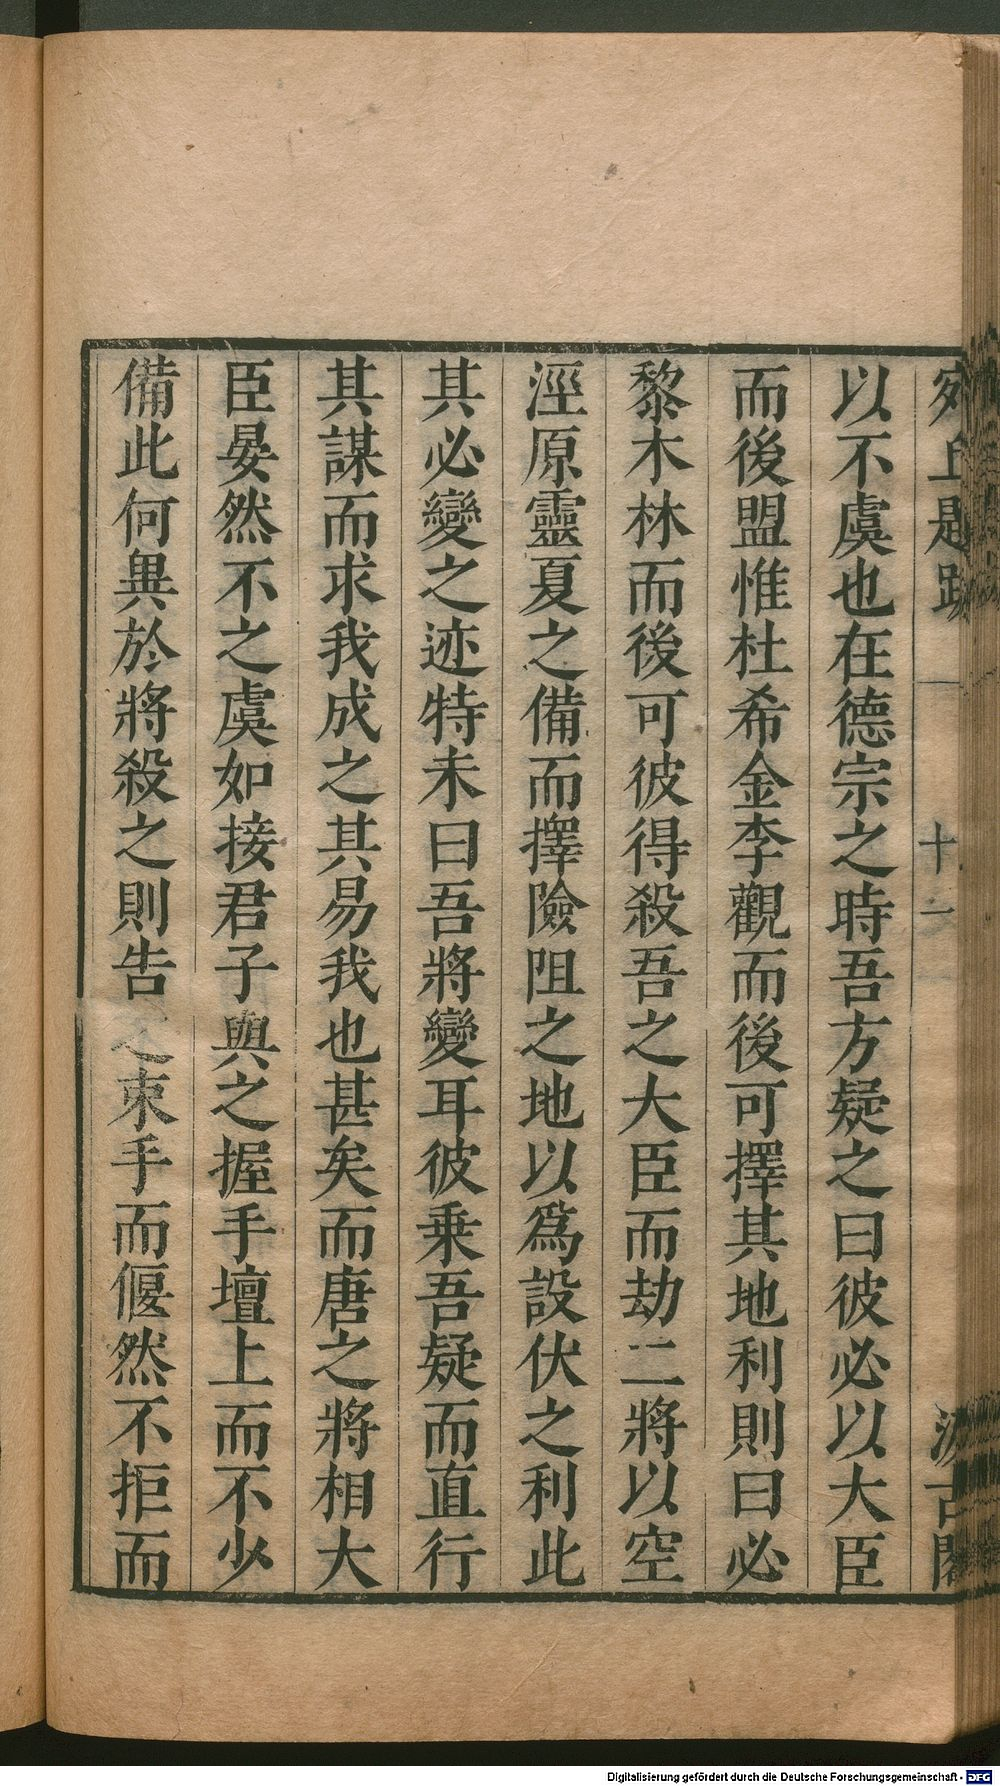 宛丘題跋 一 十一 汲古閣
以不虞也在德宗之時吾方疑之曰彼必以大臣
而後盟惟杜希金李觀而後可擇其地利則曰必
黎木林而後可彼得殺吾之大臣而劫二將以空
涇原靈夏之備而擇險阻之地以爲設伏之利此
其必變之迹特未曰吾將變耳彼乗吾疑而直行
其謀而求我成之其易我也甚矣而唐之將相大
臣晏然不之虞如接君子與之握手壇上而不少
備此何異於將殺之則告之束手而偃然不拒而
Digitalisierung gefördert durch die Deutsche Forschungsgemeinschaft - DFG